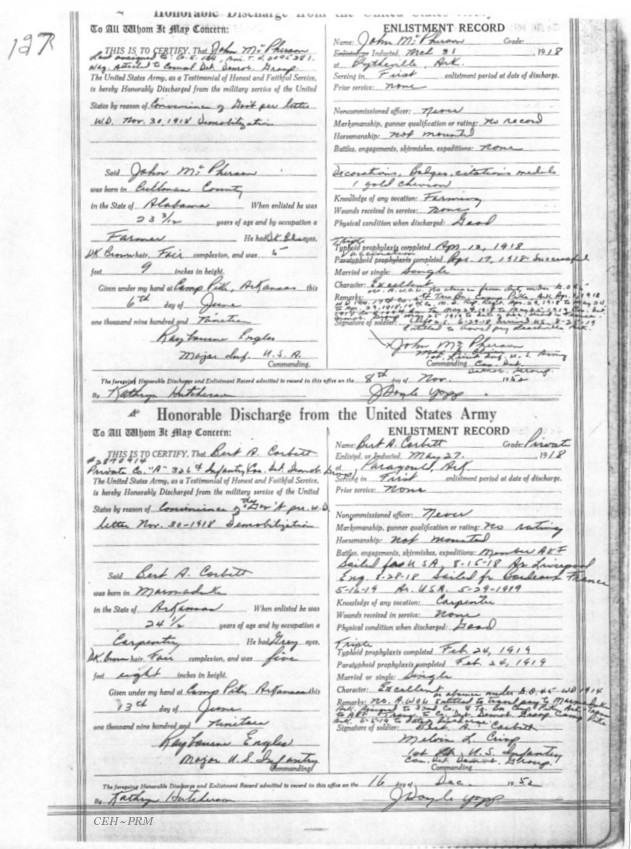 Honorable Discharge from the United States Army
127
To All Whom It May Concern:
THIS IS TO CERTIFY, That John McPherson
Last assigned to
The United States Army, as a Testimonial of Honest and Faithful Service,
is hereby Honorably Discharged from the military service of the United
States by reason of Convenience of Gov't per letter
W.D. Nov. 30, 1918 Demobilization
Said John McPherson
was born in Cullman County
in the State of Alabama When enlisted he was
23 3/12 years of age and by occupation a
Farmer He had Dk Blue eyes,
Dk Brown hair, Fair complexion, and was 5
feet 9 inches in height.
Given under my hand at Camp Pike, Arkansas this
6th day of June
one thousand nine hundred and Nineteen
Rayburne Engles
Major Inf. U.S.A.
Commanding.
ENLISTMENT RECORD
Name: John McPherson Grade:
Enlisted or Inducted, Mch 31 1918
at Blytheville, Ark.
Serving in First enlistment period at date of discharge.
Prior service: none
Noncommissioned officer: Never
Markmanship, gunner qualification or rating: no record
Horsemanship: not mounted
Battles, engagements, skirmishes, expeditions: none
Decorations, Badges, citations medals
1 gold chevron
Knowledge of any vocation: Farming
Wounds received in service: none
Physical condition when discharged: Good
Triple
Typhoid prophylaxis completed Apr. 12, 1918
Paratyphoid prophylaxis completed Apr. 17, 1918 Successful
Married or single: Single
Character: Excellent
Remarks:
Signature of soldier:
John McPherson
Commanding
The foregoing Honorable Discharge and Enlistment Record admitted to record in this office on the 8th day of Nov. 1952
By Kathryn Hutcherson J Doyle Yopp
Honorable Discharge from the United States Army
To All Whom It May Concern:
THIS IS TO CERTIFY, That Bert A. Corbitt
#2890914
Private Co. "A" 326th Infantry
The United States Army, as a Testimonial of Honest and Faithful Service,
is hereby Honorably Discharged from the military service of the United
States by reason of Convenience of the Gov't per W.D.
letter Nov. 30-1918 Demobilization
Said Bert A. Corbitt
was born in Marmaduke
in the State of Arkansas When enlisted he was
24 1/2 years of age and by occupation a
Carpentry He had Grey eyes,
Dk Brown hair, Fair complexion, and was five
feet eight inches in height.
Given under my hand at Camp Pike, Arkansas this
13th day of June
one thousand nine hundred and Nineteen
Rayburne Engles
Major U.S. Infantry
Commanding
ENLISTMENT RECORD
Name: Bert A. Corbitt Grade: Private
Enlisted, or Inducted May 27. 1918
at Paragould, Ark.
Serving in First enlistment period at date of discharge.
Prior service: None
Noncommissioned officer: Never
Markmanship, gunner qualification or rating: no rating
Horsemanship: Not mounted
Battles, engagements, skirmishes, expeditions: Member AEF
Sailed from USA, 8-15-18 Ar. Liverpool
Eng. 8-28-18 Sailed fr Bordeaux France
5-16-19 Ar. USA. 5-29-1919
Knowledge of any vocation: Carpenter
Wounds received in service: None
Physical condition when discharged: Good
Triple
Typhoid prophylaxis completed Feb 24, 1919
Paratyphoid prophylaxis completed Feb 24, 1919
Married or single: Single
Character: Excellent
Remarks: No A.W.O.L. entitled to travel pay to Marmaduke
Signature of soldier: Bert A. Corbitt
Melvin L. Crisp
1st Lt. U.S. Infantry
Commanding
The foregoing Honorable Discharge and Enlistment Record admitted to record in this office on the 16 day of Dec. 1952
By Kathryn Hutcherson J Doyle Yopp
CEH~PRM